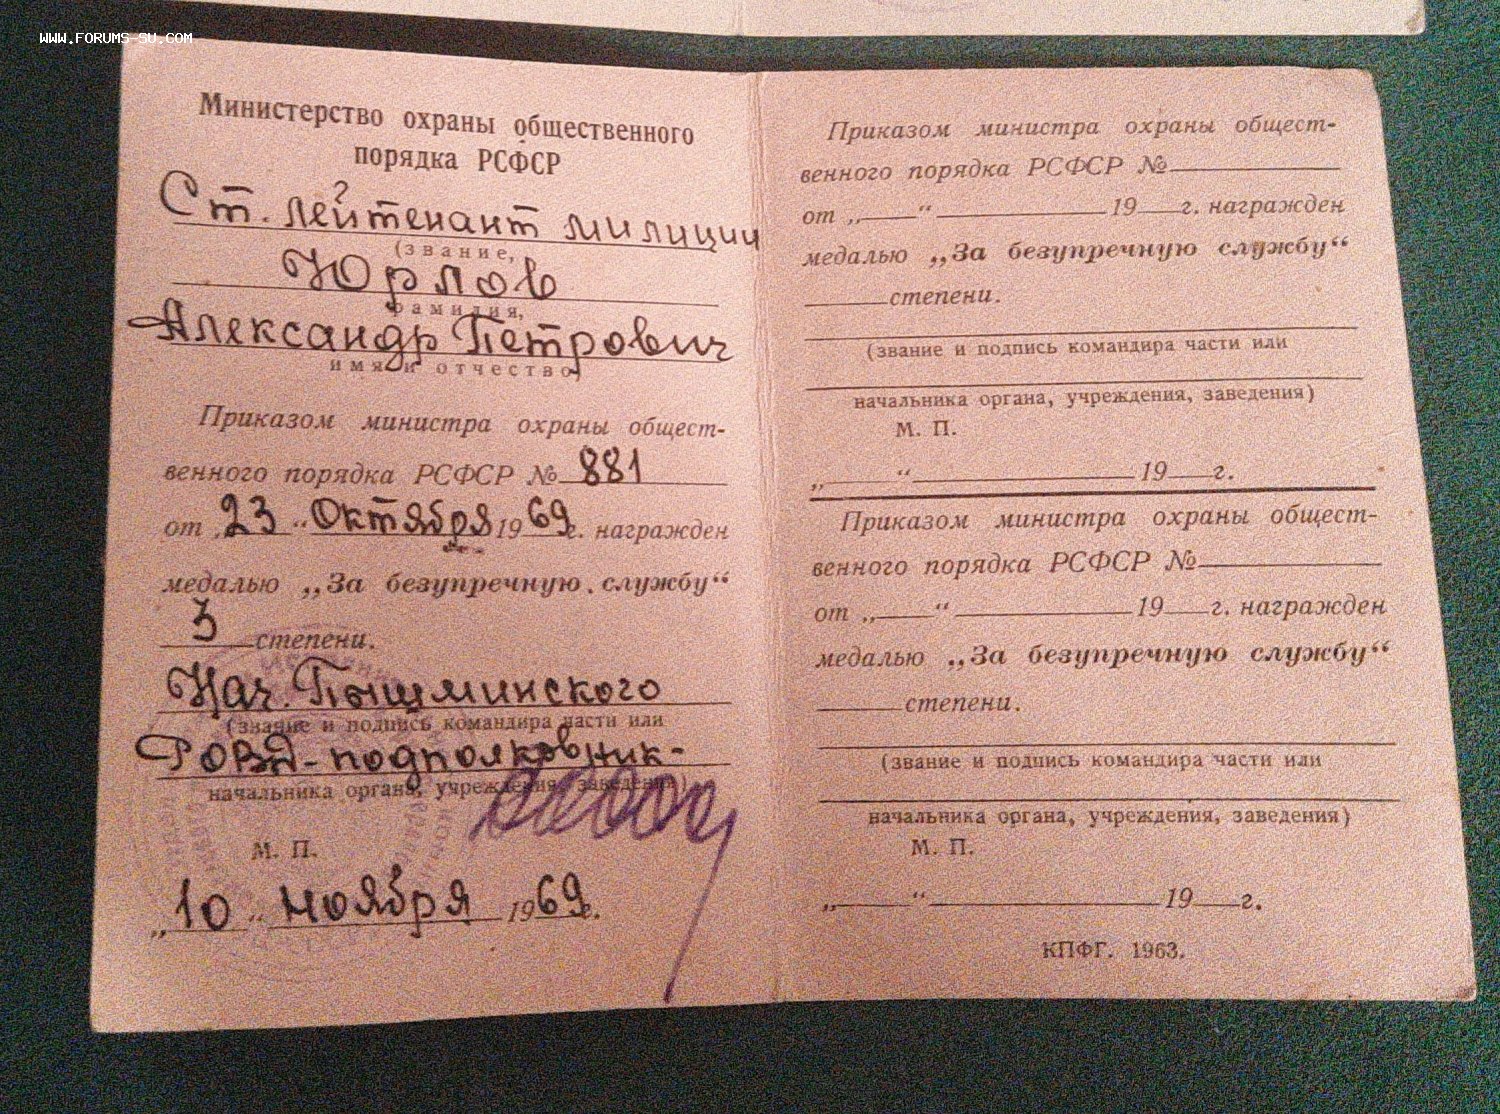 WWW.FORUMS-SU.COM
Министерство охраны общественного
порядка РСФСР
Ст. лейтенант милиции
(звание,
Юрлов
фамилия,
Александр Петрович
имя и отчество)
Приказом министра охраны общест-
венного порядка РСФСР № 881
от „23“ Октября 1969г. награжден
медалью „За безупречную службу“
3 степени.
Нач. Пышминского
(звание и подпись командира части или
РОВД-подполковник-
начальника органа, учреждения, заведения)
М. П.
„10“ ноября 1969г.
Приказом министра охраны общест-
венного порядка РСФСР №
от „ “ 19 г. награжден
медалью „За безупречную службу“
степени.
(звание и подпись командира части или
начальника органа, учреждения, заведения)
М. П.
„ “ 19 г.
Приказом министра охраны общест-
венного порядка РСФСР №
от „ “ 19 г. награжден
медалью „За безупречную службу“
степени.
(звание и подпись командира части или
начальника органа, учреждения, заведения)
М. П.
„ “ 19 г.
КПФГ. 1963.